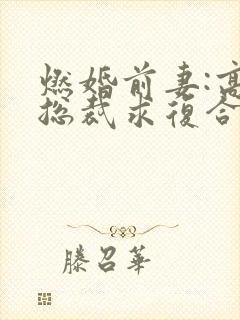 燃婚前妻:高
总裁求復合
滕召華